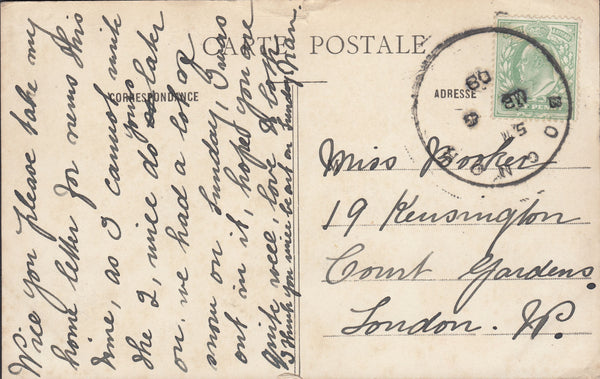 CARTE POSTALE
CORRESPONDANCE
ADRESSE
Will you please take my
home letter for news this
time, as I cannot write
the 2, nice do yours later
on. we had a lot of
snow on Sunday, I was
out in it, hope you are
quite well, love to both
I think you will be at on Sunday
BOGNOR
5.
MR 6
09
Miss
19 Kensington
Court Gardens.
London. W.